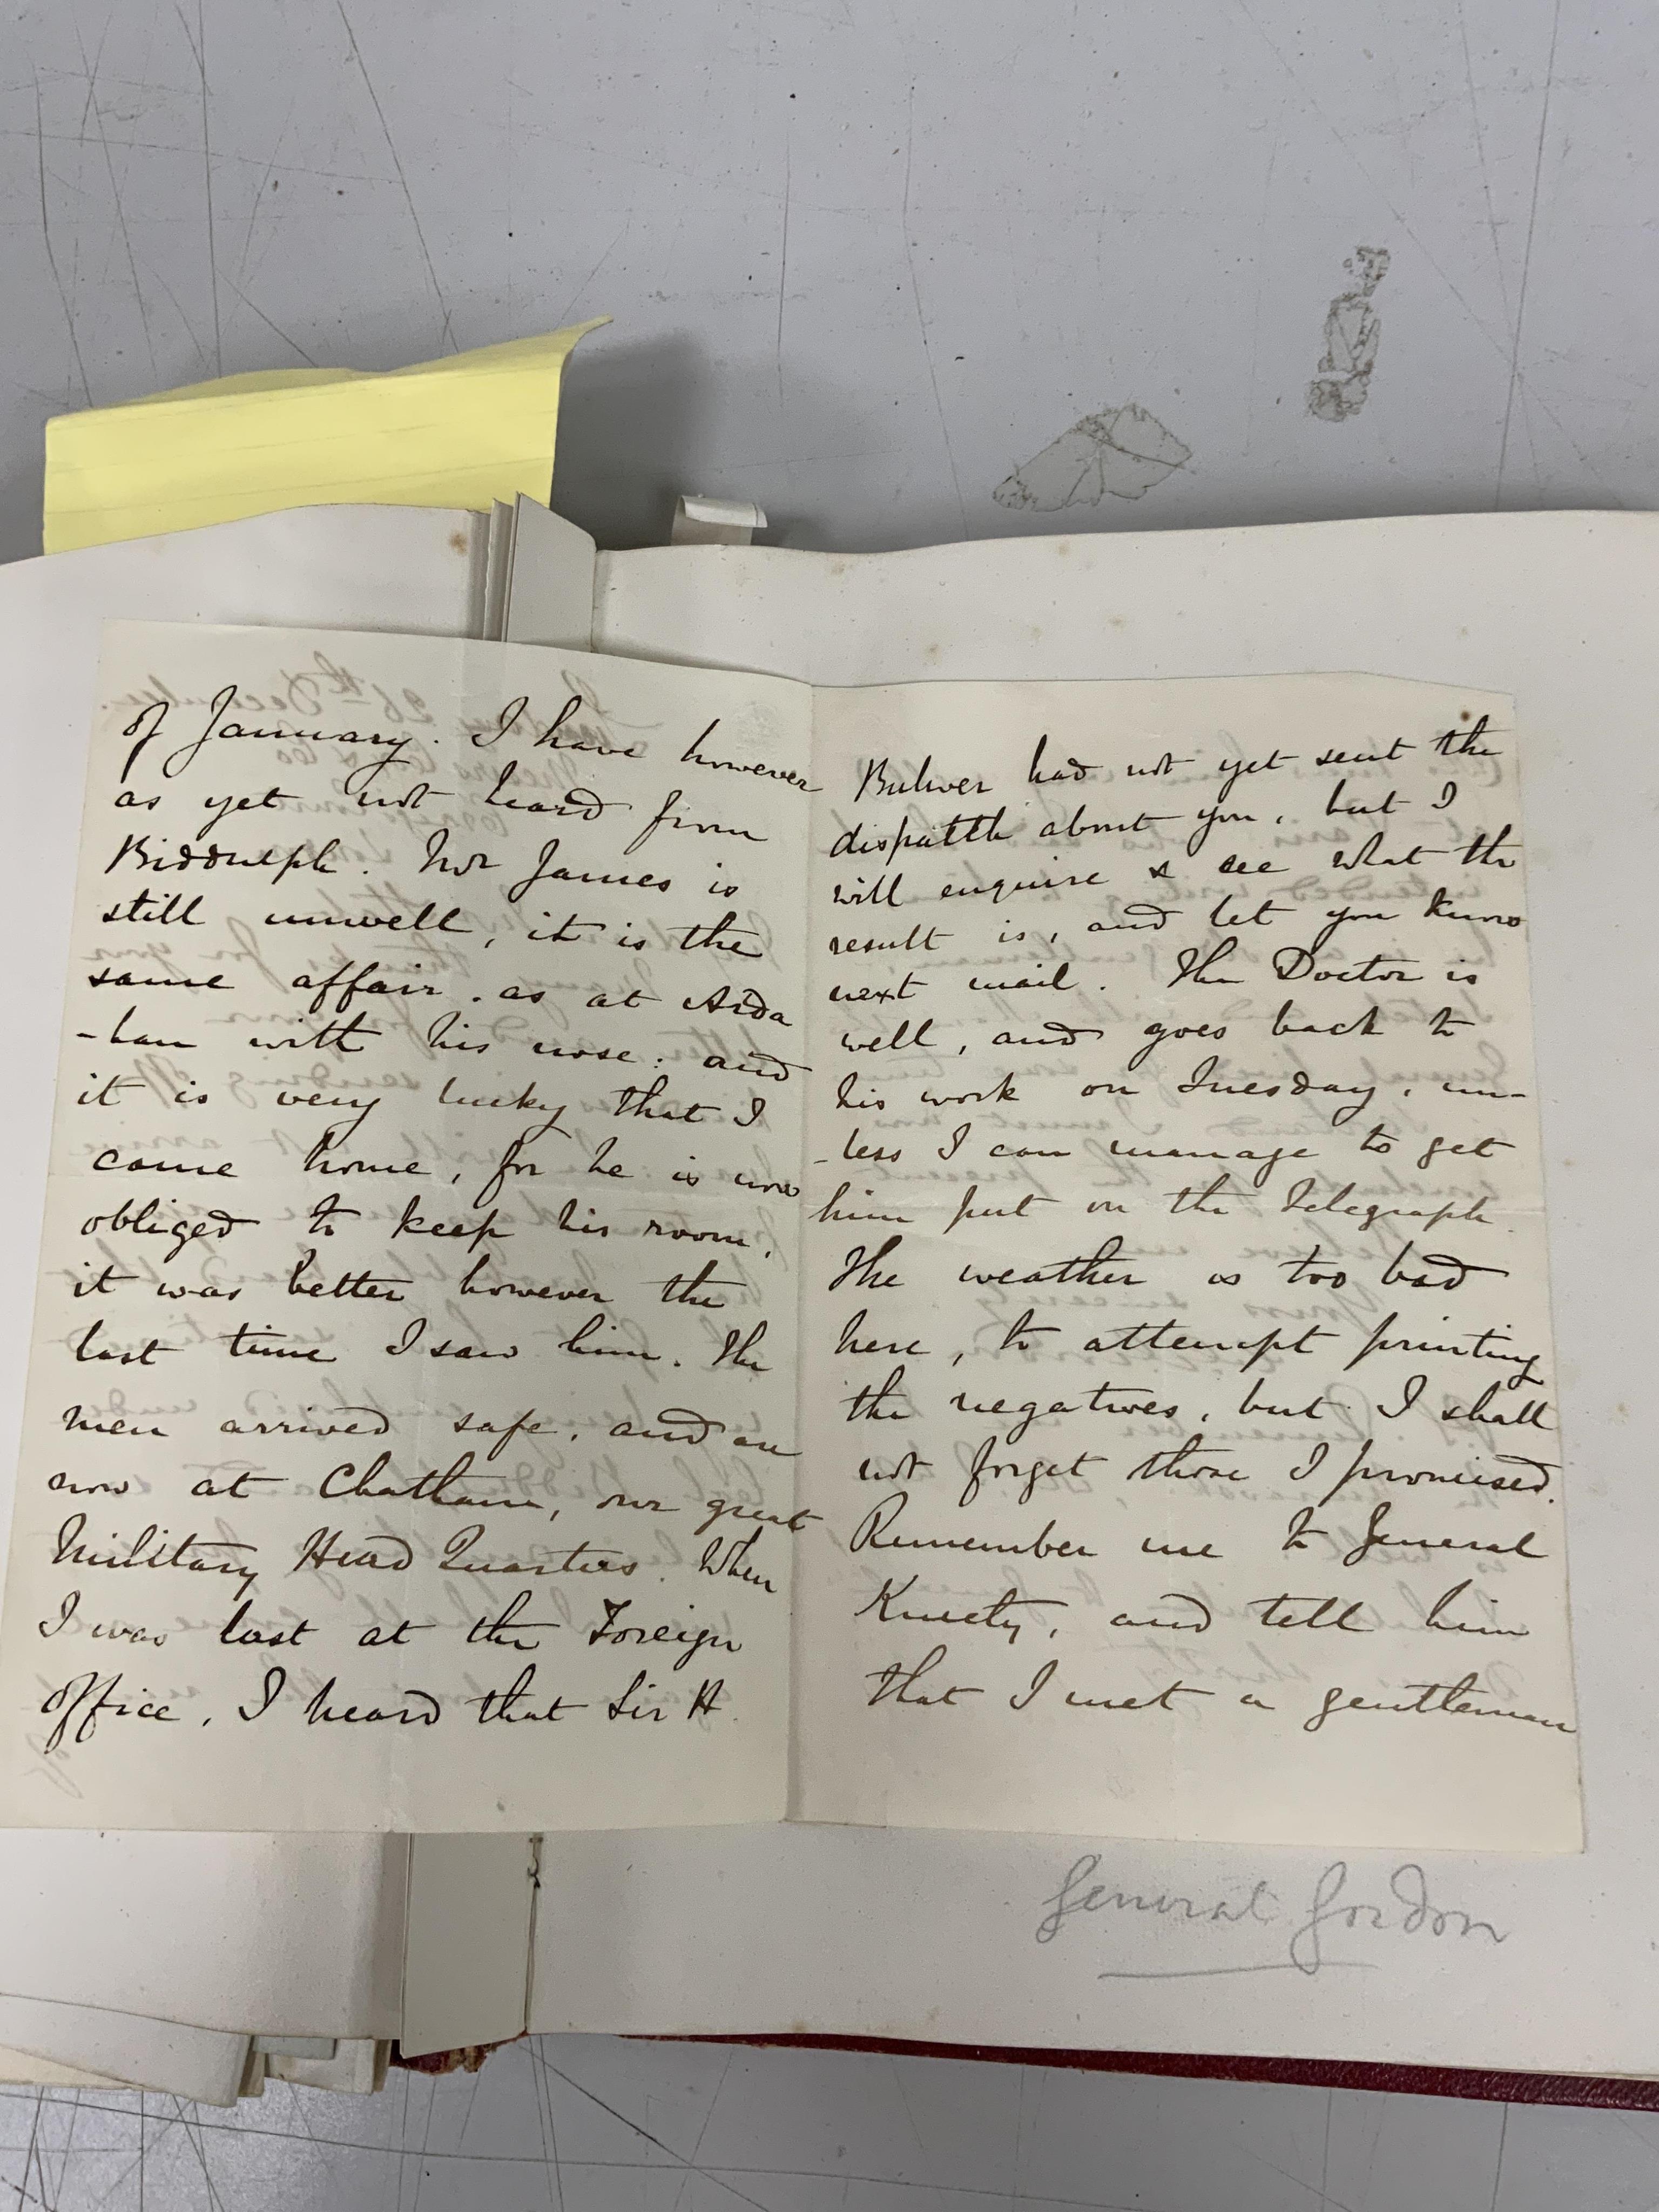 of January. I have however
as yet not heard from
Biddulph. Mr James is
still unwell, it is the
same affair. as at Arda
-han with his nose: and
it is very lucky that I
came home, for he is now
obliged to keep his room,
it was better however the
last time I saw him. The
men arrived safe, and are
now at Chatham, our great
Military Head Quarters. When
I was last at the Foreign
Office, I heard that Sir H.
Bulwer had not yet sent the
dispatch about you, but I
will enquire & see what the
result is, and let you know
next mail. The Doctor is
well, and goes back to
his work on Tuesday, un-
-less I can manage to get
him put on the Telegraph.
The weather is too bad
here, to attempt printing
the negatives, but I shall
not forget those I promised.
Remember me to General
Kmety, and tell him
that I met a gentleman
General Gordon